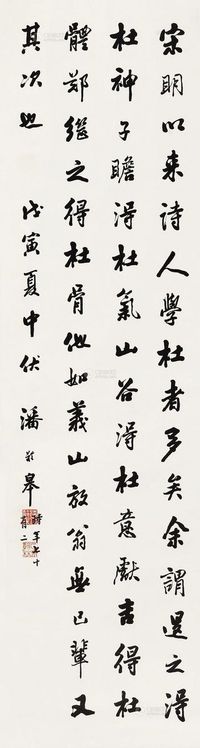 宋明以来詩人學杜者多矣余謂退之得
杜神子瞻得杜氣山谷得杜意獻吉得杜
體鄭繼之得杜骨他如義山放翁無已輩又
其次也 戊寅夏中伏 潘齡皋
時年七十有二